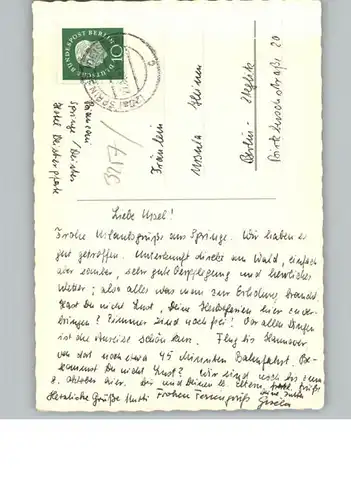 DEUTSCHE BUNDESPOST BERLIN
10
SPRINGE
Springe / Deister
Hotel Deisterpforte
327/
Fräulein
Ursula
Berlin - Steglitz
20
Liebe Ursel!
Frohe Urlaubsgrüße aus Springe. Wir haben es
gut getroffen. Unterkunft direkt am Wald, einfach
aber sauber, sehr gute Verpflegung und herrliches
Wetter; also alles was man zur Erholung braucht.
Hast Du nicht Lust, Deine Herbstferien hier zu ver-
bringen? Zimmer sind noch frei! Vor allen Dingen
ist die Anreise schön kurz. Flug bis Hannover
von dort noch etwa 45 Minuten Bahnfahrt. Be-
kommst Du nicht Lust? Wir sind noch bis zum
8. Oktober hier. Dir und Deinen lb. Eltern
Herzliche Grüße Mutti Frohen Feriengruß Gisela